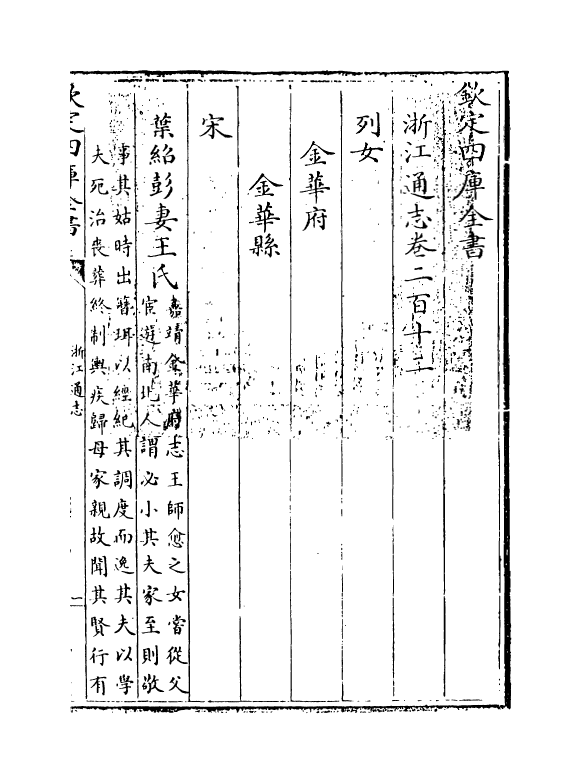 欽定四庫全書
浙江通志卷二百十二
列女
金華府
金華縣
宋
葉紹彭妻王氏
嘉靖金華府志王師愈之女當從父
宦遊南北人謂必小其夫家至則敬
事其姑時出簪珥以經紀其調度而逸其夫以學
夫死治喪葬終制輿疾歸母家親故聞其賢行有
欽定四庫全書
浙江通志